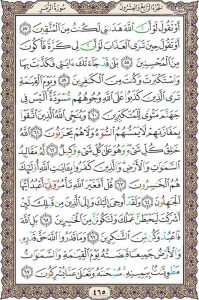 سُورَةُ الزُّمَرِ
الجُزْءُ الرَّابِعُ وَالعِشْرُونَ
أَوْ تَقُولَ لَوْ أَنَّ ٱللَّهَ هَدَىٰنِى لَكُنتُ مِنَ ٱلْمُتَّقِينَ ٥٧
أَوْ تَقُولَ حِينَ تَرَى ٱلْعَذَابَ لَوْ أَنَّ لِى كَرَّةً فَأَكُونَ
مِنَ ٱلْمُحْسِنِينَ ٥٨ بَلَىٰ قَدْ جَآءَتْكَ ءَايَٰتِى فَكَذَّبْتَ بِهَا
وَٱسْتَكْبَرْتَ وَكُنتَ مِنَ ٱلْكَٰفِرِينَ ٥٩ وَيَوْمَ ٱلْقِيَٰمَةِ
تَرَى ٱلَّذِينَ كَذَبُوا۟ عَلَى ٱللَّهِ وُجُوهُهُم مُّسْوَدَّةٌ أَلَيْسَ فِى
جَهَنَّمَ مَثْوًى لِّلْمُتَكَبِّرِينَ ٦٠ وَيُنَجِّى ٱللَّهُ ٱلَّذِينَ ٱتَّقَوْا۟
بِمَفَازَتِهِمْ لَا يَمَسُّهُمُ ٱلسُّوٓءُ وَلَا هُمْ يَحْزَنُونَ ٦١ ٱللَّهُ خَٰلِقُ
كُلِّ شَىْءٍ وَهُوَ عَلَىٰ كُلِّ شَىْءٍ وَكِيلٌ ٦٢ لَّهُۥ مَقَالِيدُ
ٱلسَّمَٰوَٰتِ وَٱلْأَرْضِ وَٱلَّذِينَ كَفَرُوا۟ بِـَٔايَٰتِ ٱللَّهِ أُو۟لَٰٓئِكَ
هُمُ ٱلْخَٰسِرُونَ ٦٣ قُلْ أَفَغَيْرَ ٱللَّهِ تَأْمُرُوٓنِّىٓ أَعْبُدُ أَيُّهَا
ٱلْجَٰهِلُونَ ٦٤ وَلَقَدْ أُوحِىَ إِلَيْكَ وَإِلَى ٱلَّذِينَ مِن قَبْلِكَ لَئِنْ
أَشْرَكْتَ لَيَحْبَطَنَّ عَمَلُكَ وَلَتَكُونَنَّ مِنَ ٱلْخَٰسِرِينَ ٦٥ بَلِ ٱللَّهَ
فَٱعْبُدْ وَكُن مِّنَ ٱلشَّٰكِرِينَ ٦٦ وَمَا قَدَرُوا۟ ٱللَّهَ حَقَّ قَدْرِهِۦ
وَٱلْأَرْضُ جَمِيعًا قَبْضَتُهُۥ يَوْمَ ٱلْقِيَٰمَةِ وَٱلسَّمَٰوَٰتُ
مَطْوِيَّٰتٌۢ بِيَمِينِهِۦ سُبْحَٰنَهُۥ وَتَعَٰلَىٰ عَمَّا يُشْرِكُونَ ٦٧
٤٦٥